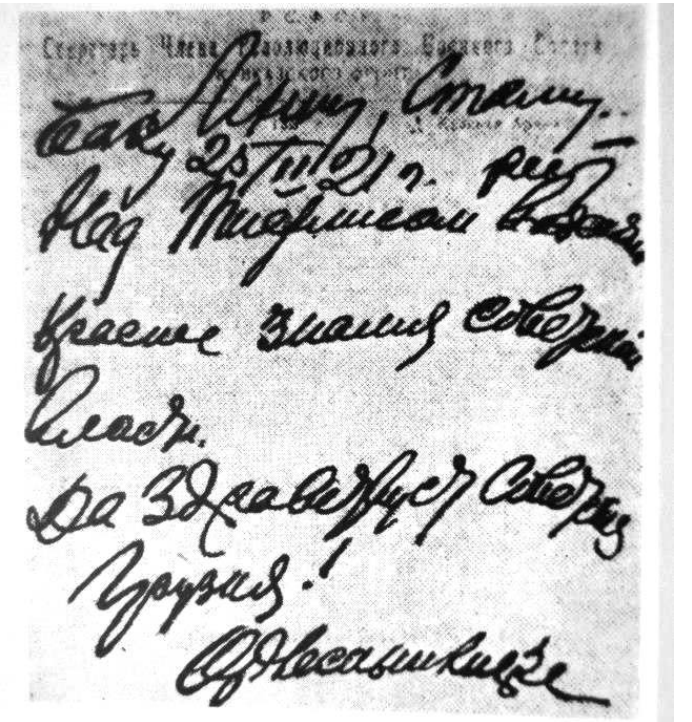 Р.С.Ф.С.Р.
Секретарь Члена Революционного Военного Совета
Кавказского фронта
Ленину, Сталину.
Баку 25/II 21 г.
Над Тифлисом
Красное знамя советской
власти.
Да здравствует Советская
Грузия!
Орджоникидзе